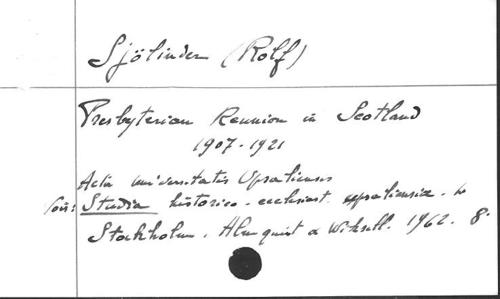 Sjölinder (Rolf)
Presbyterian Reunion in Scotland
1907-1921
Acta universitatis Upsaliensis
Studia historico-ecclesiast. upsaliensia.
Stockholm, Almquist & Wiksell. 1962. 8°